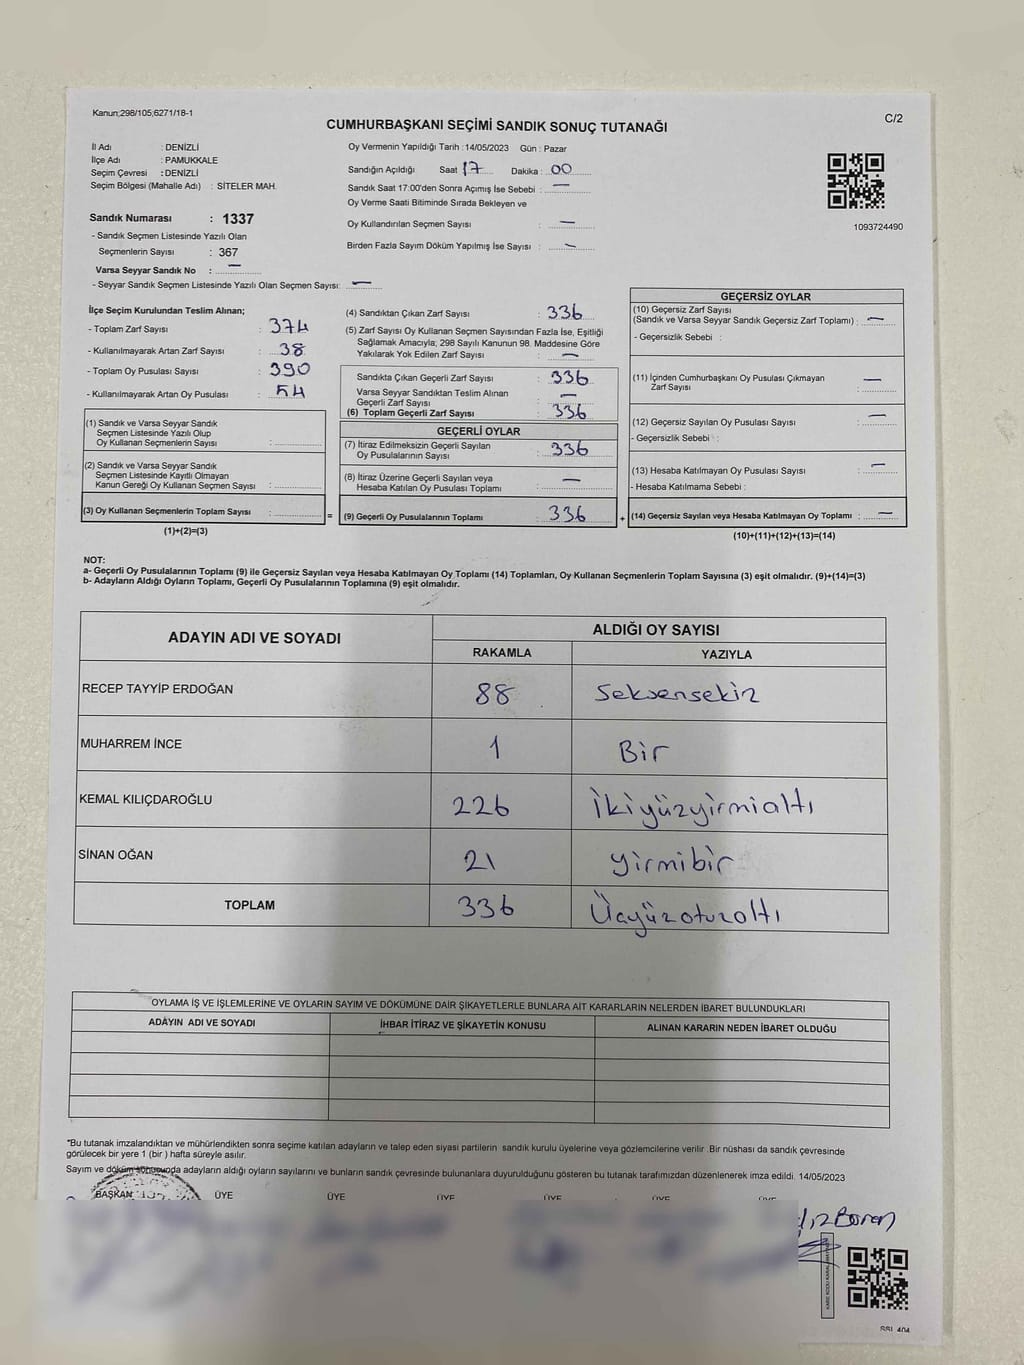 Kanun;298/105;6271/18-1
C/2
CUMHURBAŞKANI SEÇİMİ SANDIK SONUÇ TUTANAĞI
İl Adı : DENİZLİ
İlçe Adı : PAMUKKALE
Seçim Çevresi : DENİZLİ
Seçim Bölgesi (Mahalle Adı) : SİTELER MAH.
Sandık Numarası : 1337
- Sandık Seçmen Listesinde Yazılı Olan
Seçmenlerin Sayısı : 367
Varsa Seyyar Sandık No : —
- Seyyar Sandık Seçmen Listesinde Yazılı Olan Seçmen Sayısı: —
Oy Vermenin Yapıldığı Tarih : 14/05/2023 Gün : Pazar
Sandığın Açıldığı Saat 17 Dakika : 00
Sandık Saat 17:00'den Sonra Açımış İse Sebebi : —
Oy Verme Saati Bitiminde Sırada Bekleyen ve
Oy Kullandırılan Seçmen Sayısı : —
Birden Fazla Sayım Döküm Yapılmış İse Sayısı : —
1093724490
İlçe Seçim Kurulundan Teslim Alınan;
- Toplam Zarf Sayısı : 374
- Kullanılmayarak Artan Zarf Sayısı : 38
- Toplam Oy Pusulası Sayısı : 390
- Kullanılmayarak Artan Oy Pusulası : 54
(1) Sandık ve Varsa Seyyar Sandık
Seçmen Listesinde Yazılı Olup
Oy Kullanan Seçmenlerin Sayısı :
(2) Sandık ve Varsa Seyyar Sandık
Seçmen Listesinde Kayıtlı Olmayan
Kanun Gereği Oy Kullanan Seçmen Sayısı :
(3) Oy Kullanan Seçmenlerin Toplam Sayısı : =
(1)+(2)=(3)
(4) Sandıktan Çıkan Zarf Sayısı : 336
(5) Zarf Sayısı Oy Kullanan Seçmen Sayısından Fazla İse, Eşitliği
Sağlamak Amacıyla; 298 Sayılı Kanunun 98. Maddesine Göre
Yakılarak Yok Edilen Zarf Sayısı : —
Sandıkta Çıkan Geçerli Zarf Sayısı : 336
Varsa Seyyar Sandıktan Teslim Alınan
Geçerli Zarf Sayısı : —
(6) Toplam Geçerli Zarf Sayısı : 336
GEÇERLİ OYLAR
(7) İtiraz Edilmeksizin Geçerli Sayılan
Oy Pusulalarının Sayısı : 336
(8) İtiraz Üzerine Geçerli Sayılan veya
Hesaba Katılan Oy Pusulası Toplamı : —
(9) Geçerli Oy Pusulalarının Toplamı : 336 +
GEÇERSİZ OYLAR
(10) Geçersiz Zarf Sayısı
(Sandık ve Varsa Seyyar Sandık Geçersiz Zarf Toplamı) : —
- Geçersizlik Sebebi :
(11) İçinden Cumhurbaşkanı Oy Pusulası Çıkmayan
Zarf Sayısı : —
(12) Geçersiz Sayılan Oy Pusulası Sayısı : —
- Geçersizlik Sebebi :
(13) Hesaba Katılmayan Oy Pusulası Sayısı : —
- Hesaba Katılmama Sebebi :
(14) Geçersiz Sayılan veya Hesaba Katılmayan Oy Toplamı : —
(10)+(11)+(12)+(13)=(14)
NOT:
a- Geçerli Oy Pusulalarının Toplamı (9) ile Geçersiz Sayılan veya Hesaba Katılmayan Oy Toplamı (14) Toplamları, Oy Kullanan Seçmenlerin Toplam Sayısına (3) eşit olmalıdır. (9)+(14)=(3)
b- Adayların Aldığı Oyların Toplamı, Geçerli Oy Pusulalarının Toplamına (9) eşit olmalıdır.
ADAYIN ADI VE SOYADI
ALDIĞI OY SAYISI
RAKAMLA YAZIYLA
RECEP TAYYİP ERDOĞAN 88 Seksensekiz
MUHARREM İNCE 1 Bir
KEMAL KILIÇDAROĞLU 226 İkiyüzyirmialtı
SİNAN OĞAN 21 yirmibir
TOPLAM 336 Üçyüzotuzaltı
OYLAMA İŞ VE İŞLEMLERİNE VE OYLARIN SAYIM VE DÖKÜMÜNE DAİR ŞİKAYETLERLE BUNLARA AİT KARARLARIN NELERDEN İBARET BULUNDUKLARI
ADAYIN ADI VE SOYADI İHBAR İTİRAZ VE ŞİKAYETİN KONUSU ALINAN KARARIN NEDEN İBARET OLDUĞU
"Bu tutanak imzalandıktan ve mühürlendikten sonra seçime katılan adayların ve talep eden siyasi partilerin sandık kurulu üyelerine veya gözlemcilerine verilir .Bir nüshası da sandık çevresinde
görülecek bir yere 1 (bir ) hafta süreyle asılır.
Sayım ve döküm sonucunda adayların aldığı oyların sayılarını ve bunların sandık çevresinde bulunanlara duyurulduğunu gösteren bu tutanak tarafımızdan düzenlenerek imza edildi. 14/05/2023
BAŞKAN ÜYE ÜYE ÜYE ÜYE ÜYE ÜYE
Boran